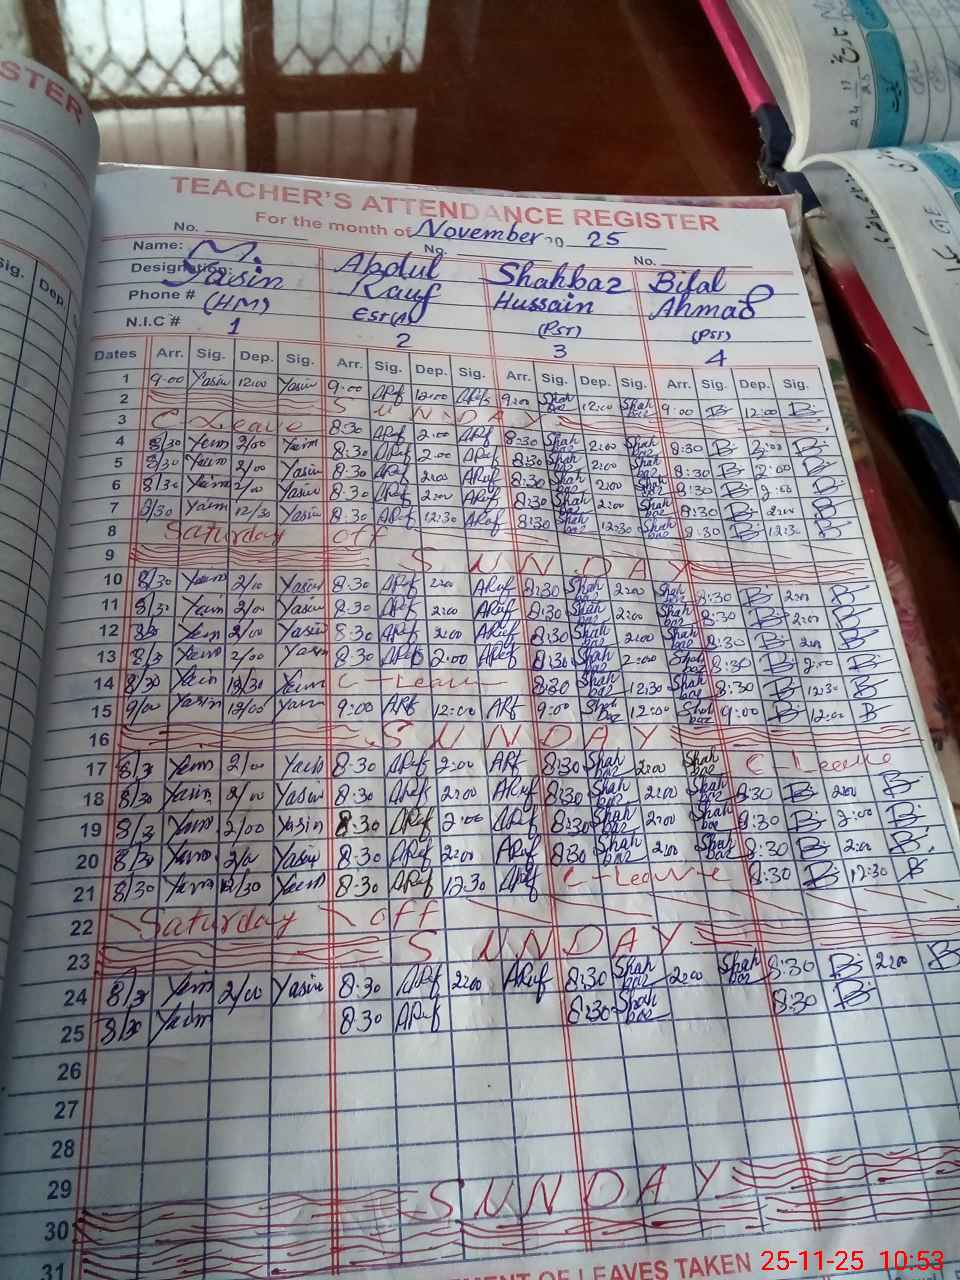 STER
TEACHER'S ATTENDANCE REGISTER
For the month of November 20 25
No. No. No.
Name: M. Yasin Abdul Rauf Shahbaz Hussain Bilal Ahmad
Designation: (HM) EST(A) (PST) (PST)
Phone #
N.I.C # 1 2 3 4
Sig. Dep.
Dates Arr. Sig. Dep. Sig. Arr. Sig. Dep. Sig. Arr. Sig. Dep. Sig. Arr. Sig. Dep. Sig.
1 9:00 Yasin 12:00 Yasin 9:00 ARef 12:00 ARef 9:00 Shah baz 12:00 Shah baz 9:00 B 12:00 B
2 SUNDAY
3 C-Leave 8:30 ARef 2:00 ARef 8:30 Shah baz 2:00 Shah baz 8:30 B 2:00 B
4 8/30 Yasin 2/00 Yasin 8:30 ARef 2:00 ARef 8:30 Shah baz 2:00 Shah baz 8:30 B 2:00 B
5 8/30 Yasin 2/00 Yasin 8:30 ARef 2:00 ARef 8:30 Shah baz 2:00 Shah baz 8:30 B 2:00 B
6 8/30 Yasin 2/00 Yasin 8:30 ARef 2:00 ARef 8:30 Shah baz 2:00 Shah baz 8:30 B 2:00 B
7 8/30 Yasin 12/30 Yasin 8:30 ARef 12:30 ARef 8:30 Shah baz 12:30 Shah baz 8:30 B 12:30 B
8 Saturday off
9 SUNDAY
10 8/30 Yasin 2/00 Yasin 8:30 ARef 2:00 ARef 8:30 Shah baz 2:00 Shah baz 8:30 B 2:00 B
11 8/30 Yasin 2/00 Yasin 8:30 ARef 2:00 ARef 8:30 Shah baz 2:00 Shah baz 8:30 B 2:00 B
12 8/30 Yasin 2/00 Yasin 8:30 ARef 2:00 ARef 8:30 Shah baz 2:00 Shah baz 8:30 B 2:00 B
13 8/30 Yasin 2/00 Yasin 8:30 ARef 2:00 ARef 8:30 Shah baz 2:00 Shah baz 8:30 B 2:00 B
14 8/30 Yasin 12/30 Yasin C-Leave 8:30 Shah baz 12:30 Shah baz 8:30 B 12:30 B
15 9/00 Yasin 12/00 Yasin 9:00 ARf 12:00 ARf 9:00 Shah baz 12:00 Shah baz 9:00 B 12:00 B
16 SUNDAY
17 8/30 Yasin 2/00 Yasin 8:30 ARef 2:00 ARf 8:30 Shah baz 2:00 Shah baz C-Leave
18 8/30 Yasin 2/00 Yasin 8:30 ARef 2:00 ARef 8:30 Shah baz 2:00 Shah baz 8:30 B 2:00 B
19 8/30 Yasin 2/00 Yasin 8:30 ARef 2:00 ARef 8:30 Shah baz 2:00 Shah baz 8:30 B 2:00 B
20 8/30 Yasin 2/00 Yasin 8:30 ARef 2:00 ARef 8:30 Shah baz 2:00 Shah baz 8:30 B 2:00 B
21 8/30 Yasin 12/30 Yasin 8:30 ARef 12:30 ARef C-Leave 8:30 B 12:30 B
22 Saturday off
23 SUNDAY
24 8/30 Yasin 2/00 Yasin 8:30 ARef 2:00 ARef 8:30 Shah baz 2:00 Shah baz 8:30 B 2:00 B
25 8/30 Yasin 8:30 ARef 8:30 Shah baz 8:30 B
26
27
28
29
30 SUNDAY
31
MENT OF LEAVES TAKEN
25-11-25 10:53